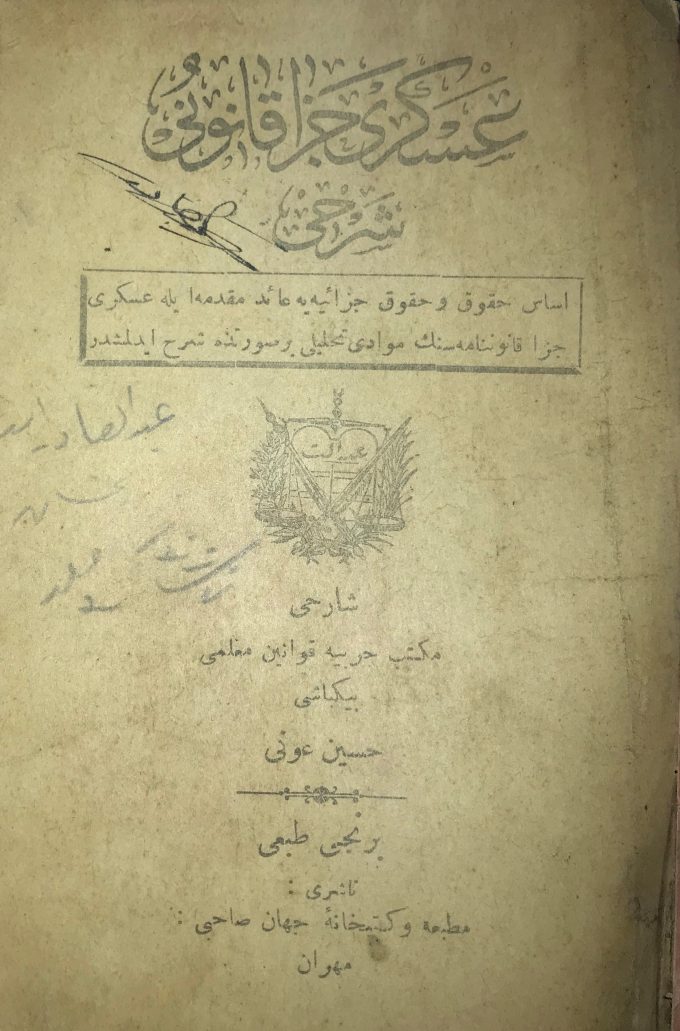 عسكرى جزا قانونى
شرحى
اساس حقوق و حقوق جزائيه‌يه عائد مقدمه ايله عسكرى
جزا قانوننامه‌سنك موادى تحليلى بر صورتده شرح ايدلمشدر
عدالت
شارحى
مكتب حربيه قوانين معلمى
بيكباشى
حسين عونى
برنجى طبعى
ناشرى :
مطبعه و كتبخانهٔ جهان صاحبى :
مهران